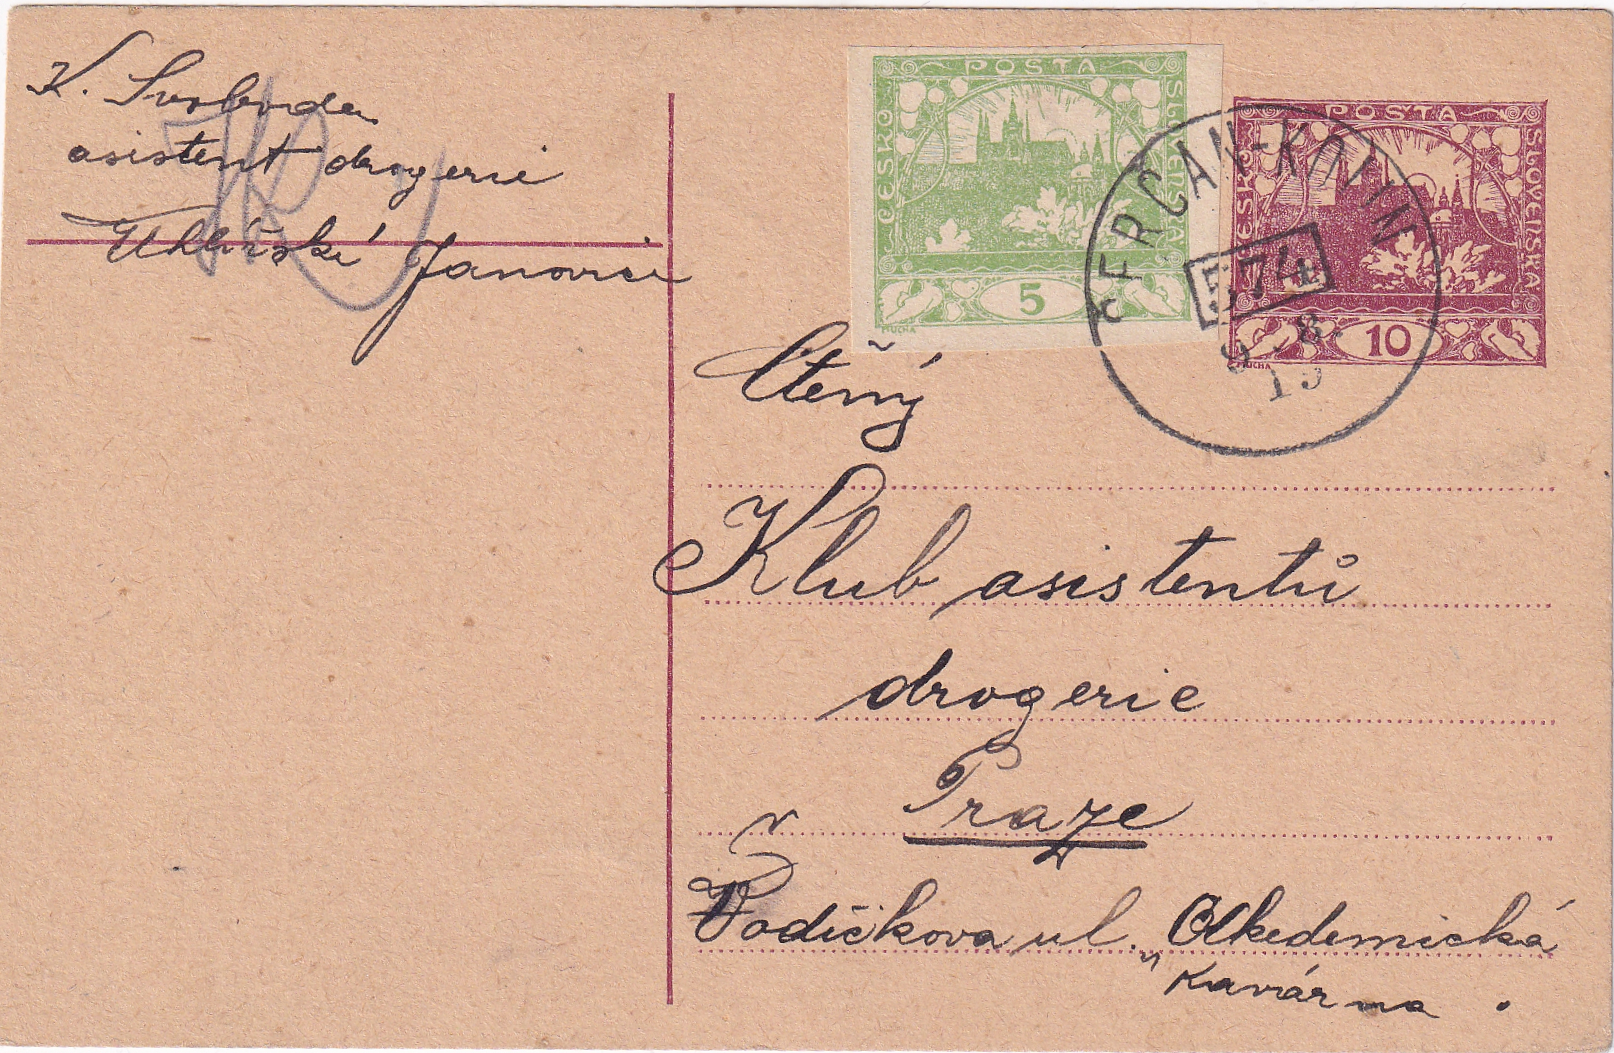 K. Svoboda
asistent drogerie
Uhlířské Janovici
POSTA
ČESKO
SLOVENSKÁ
5
MUCHA
POSTA
ČESKO
SLOVENSKÁ
10
MUCHA
ČERČAN-KOLÍN
574
9. 8.
19
Ctěný
Klub asistentů
drogerie
v Praze
Vodičkova ul. Akedemická
kavárna.